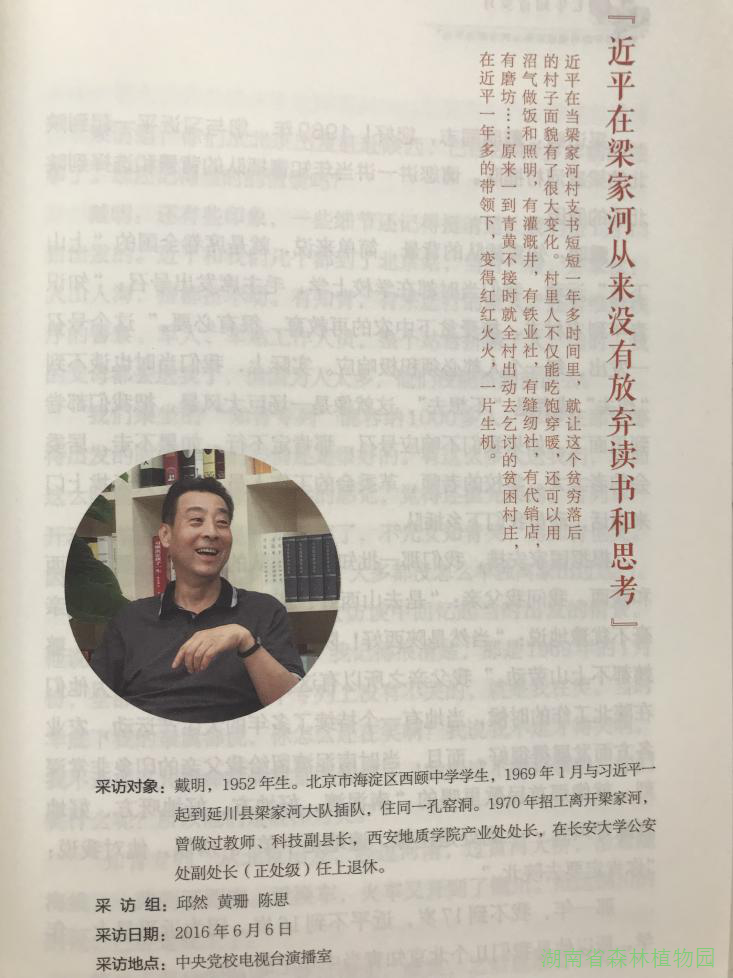 『近平在梁家河从来没有放弃读书和思考』
近平在当梁家河村支书短短一年多时间里，就让这个贫穷落后
的村子面貌有了很大变化。村里人不仅能吃饱穿暖，还可以用
沼气做饭和照明，有灌溉井，有铁业社，有缝纫社，有代销店，
有磨坊……原来一到青黄不接时就全村出动去乞讨的贫困村庄，
在近平一年多的带领下，变得红红火火，一片生机。
采访对象：戴明，1952 年生。北京市海淀区西颐中学学生，1969 年 1 月与习近平一
起到延川县梁家河大队插队，住同一孔窑洞。1970 年招工离开梁家河，
曾做过教师、科技副县长，西安地质学院产业处处长，在长安大学公安
处副处长（正处级）任上退休。
采 访 组：邱然 黄珊 陈思
采访日期：2016 年 6 月 6 日
采访地点：中央党校电视台演播室
湖南省森林植物园